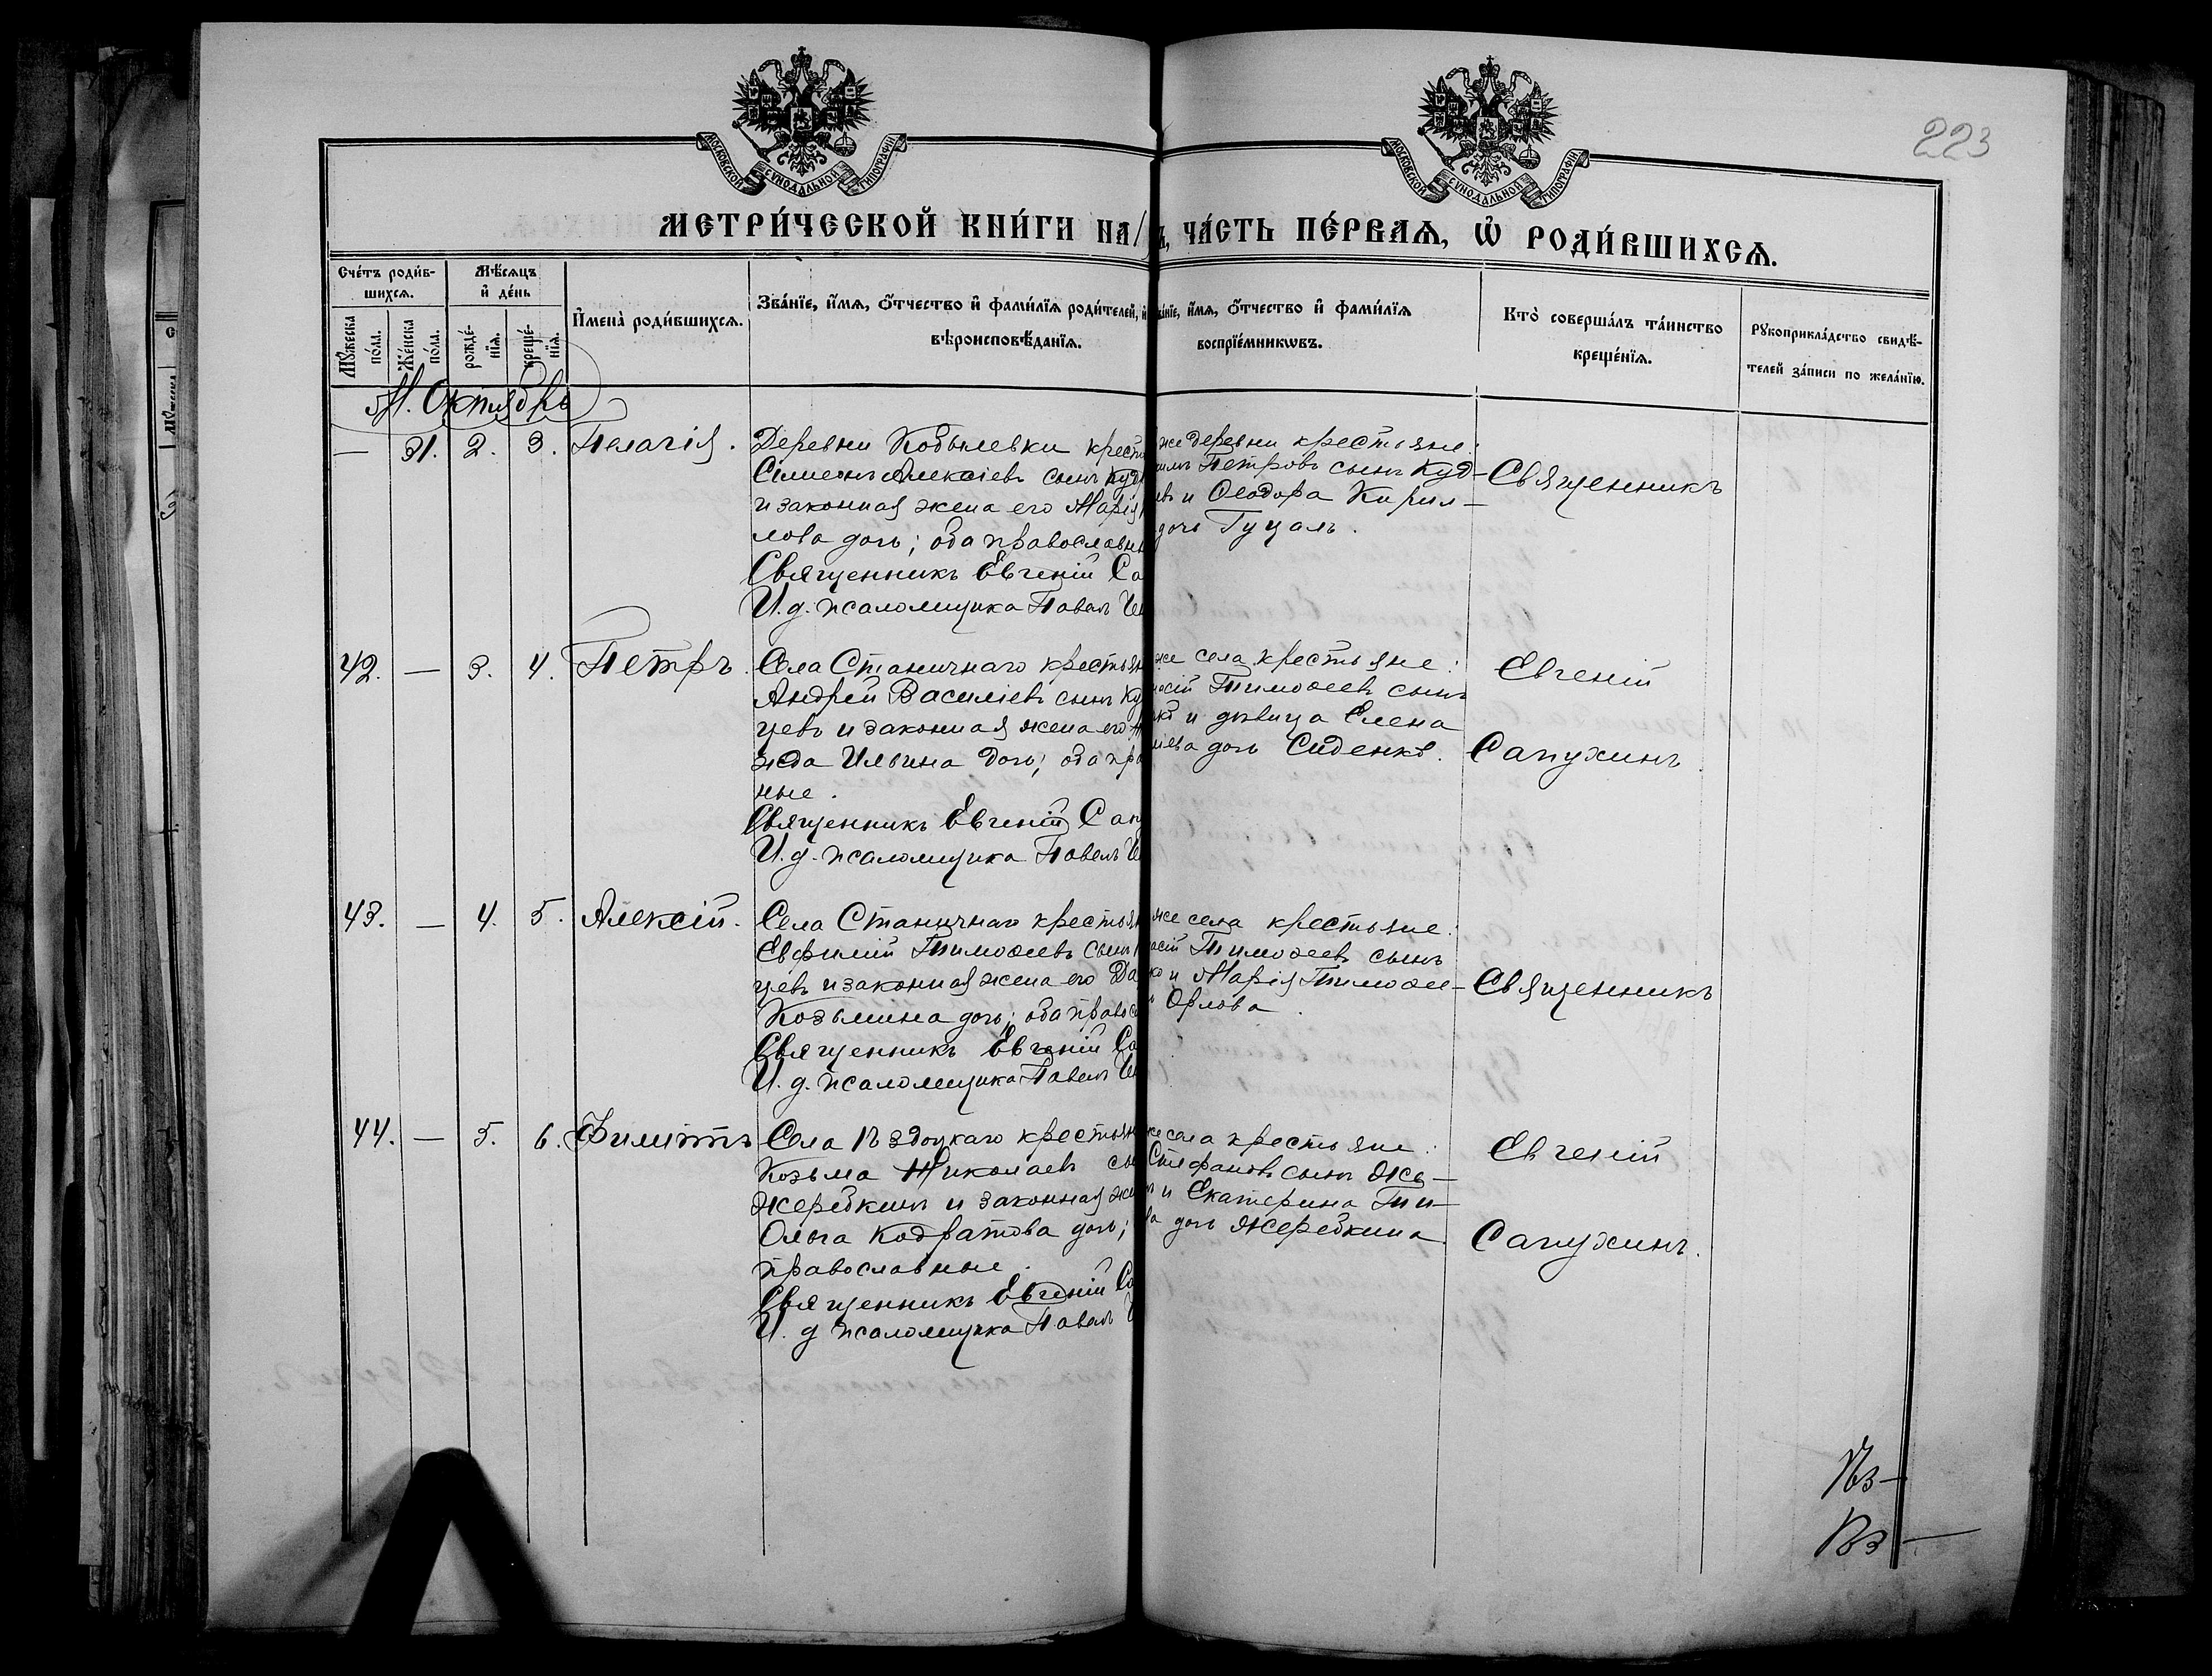 МОСКОВСКОЙ СѴНОДАЛЬНОЙ ТИПОГРАФІИ
МОСКОВСКОЙ СѴНОДАЛЬНОЙ ТИПОГРАФІИ
223
МЕТРИ́ЧЕСКОЙ КНИ́ГИ НА
ЧА́СТЬ ПЕ́РВАѦ, Ѡ҆ РОДИ́ВШИХСѦ.
Сче́тъ роди́в-
шихсѧ.
Мѣ́сѧцъ
и҆ де́нь
Мꙋ́жеска
по́ла.
Же́нска
по́ла.
рожде́-
нїѧ.
креще́-
нїѧ.
И҆мена̀ роди́вшихсѧ.
Зва́нїе, и҆́мѧ, ѻ҆́тчество и҆ фами́лїѧ роди́телей, и҆
вѣроисповѣ́данїѧ.
и҆́мѧ, ѻ҆́тчество и҆ фами́лїѧ
воспрїе́мникѡвъ.
Кто̀ соверша́лъ та́инство
креще́нїѧ.
Рꙋкоприкла́дство свидѣ́-
телей за́писи по жела́нїю.
М. Октябрь
— 31. 2. 3. Пелагія.
Деревни Кобылевки крест
Сѵмеонъ Алексіевъ сынъ Куд
и законная жена его Марія
лова дочь; оба православн
Священникъ Евгеній Са
И. д. псаломщика Павелъ
же деревни крестьяне:
Петровъ сынъ Куд-
въ и Ѳеодора Кирил-
дочь Гуцалъ.
Священникъ
42. — 3. 4. Петръ.
Села Станичнаго крестьян
Андрей Василіевъ сынъ Ку
цевъ и законная жена его
жда Ильина дочь; оба пра
ные.
Священникъ Евгеній Сап
И. д. псаломщика Павелъ
же села крестьяне:
Тимоѳеевъ сынъ
и дѣвица Елена
дочь Сиденко.
Евгеній
Сапухинъ.
43. — 4. 5. Алексій.
Села Станичнаго крестьян
Евфимій Тимоѳеевъ сынъ
цевъ и законная жена его Да
Козьмина дочь; оба правос
Священникъ Евгеній Са
И. д. псаломщика Павелъ
же села крестьяне:
Тимоѳеевъ сынъ
и Марія Тимоѳее-
Орлова.
Священникъ
44. — 5. 6. Филиппъ
Села Ѣздоцкаго крестьян
Козьма Николаевъ сы
Жеребкинъ и законная же
Ольга Кодратова дочь;
православные.
Священникъ Евгеній Са
И. д псаломщика Павелъ
же села крестьяне:
Стефановъ сынъ Же-
и Екатерина Ти-
дочь Жеребкина
Евгеній
Сапухинъ.